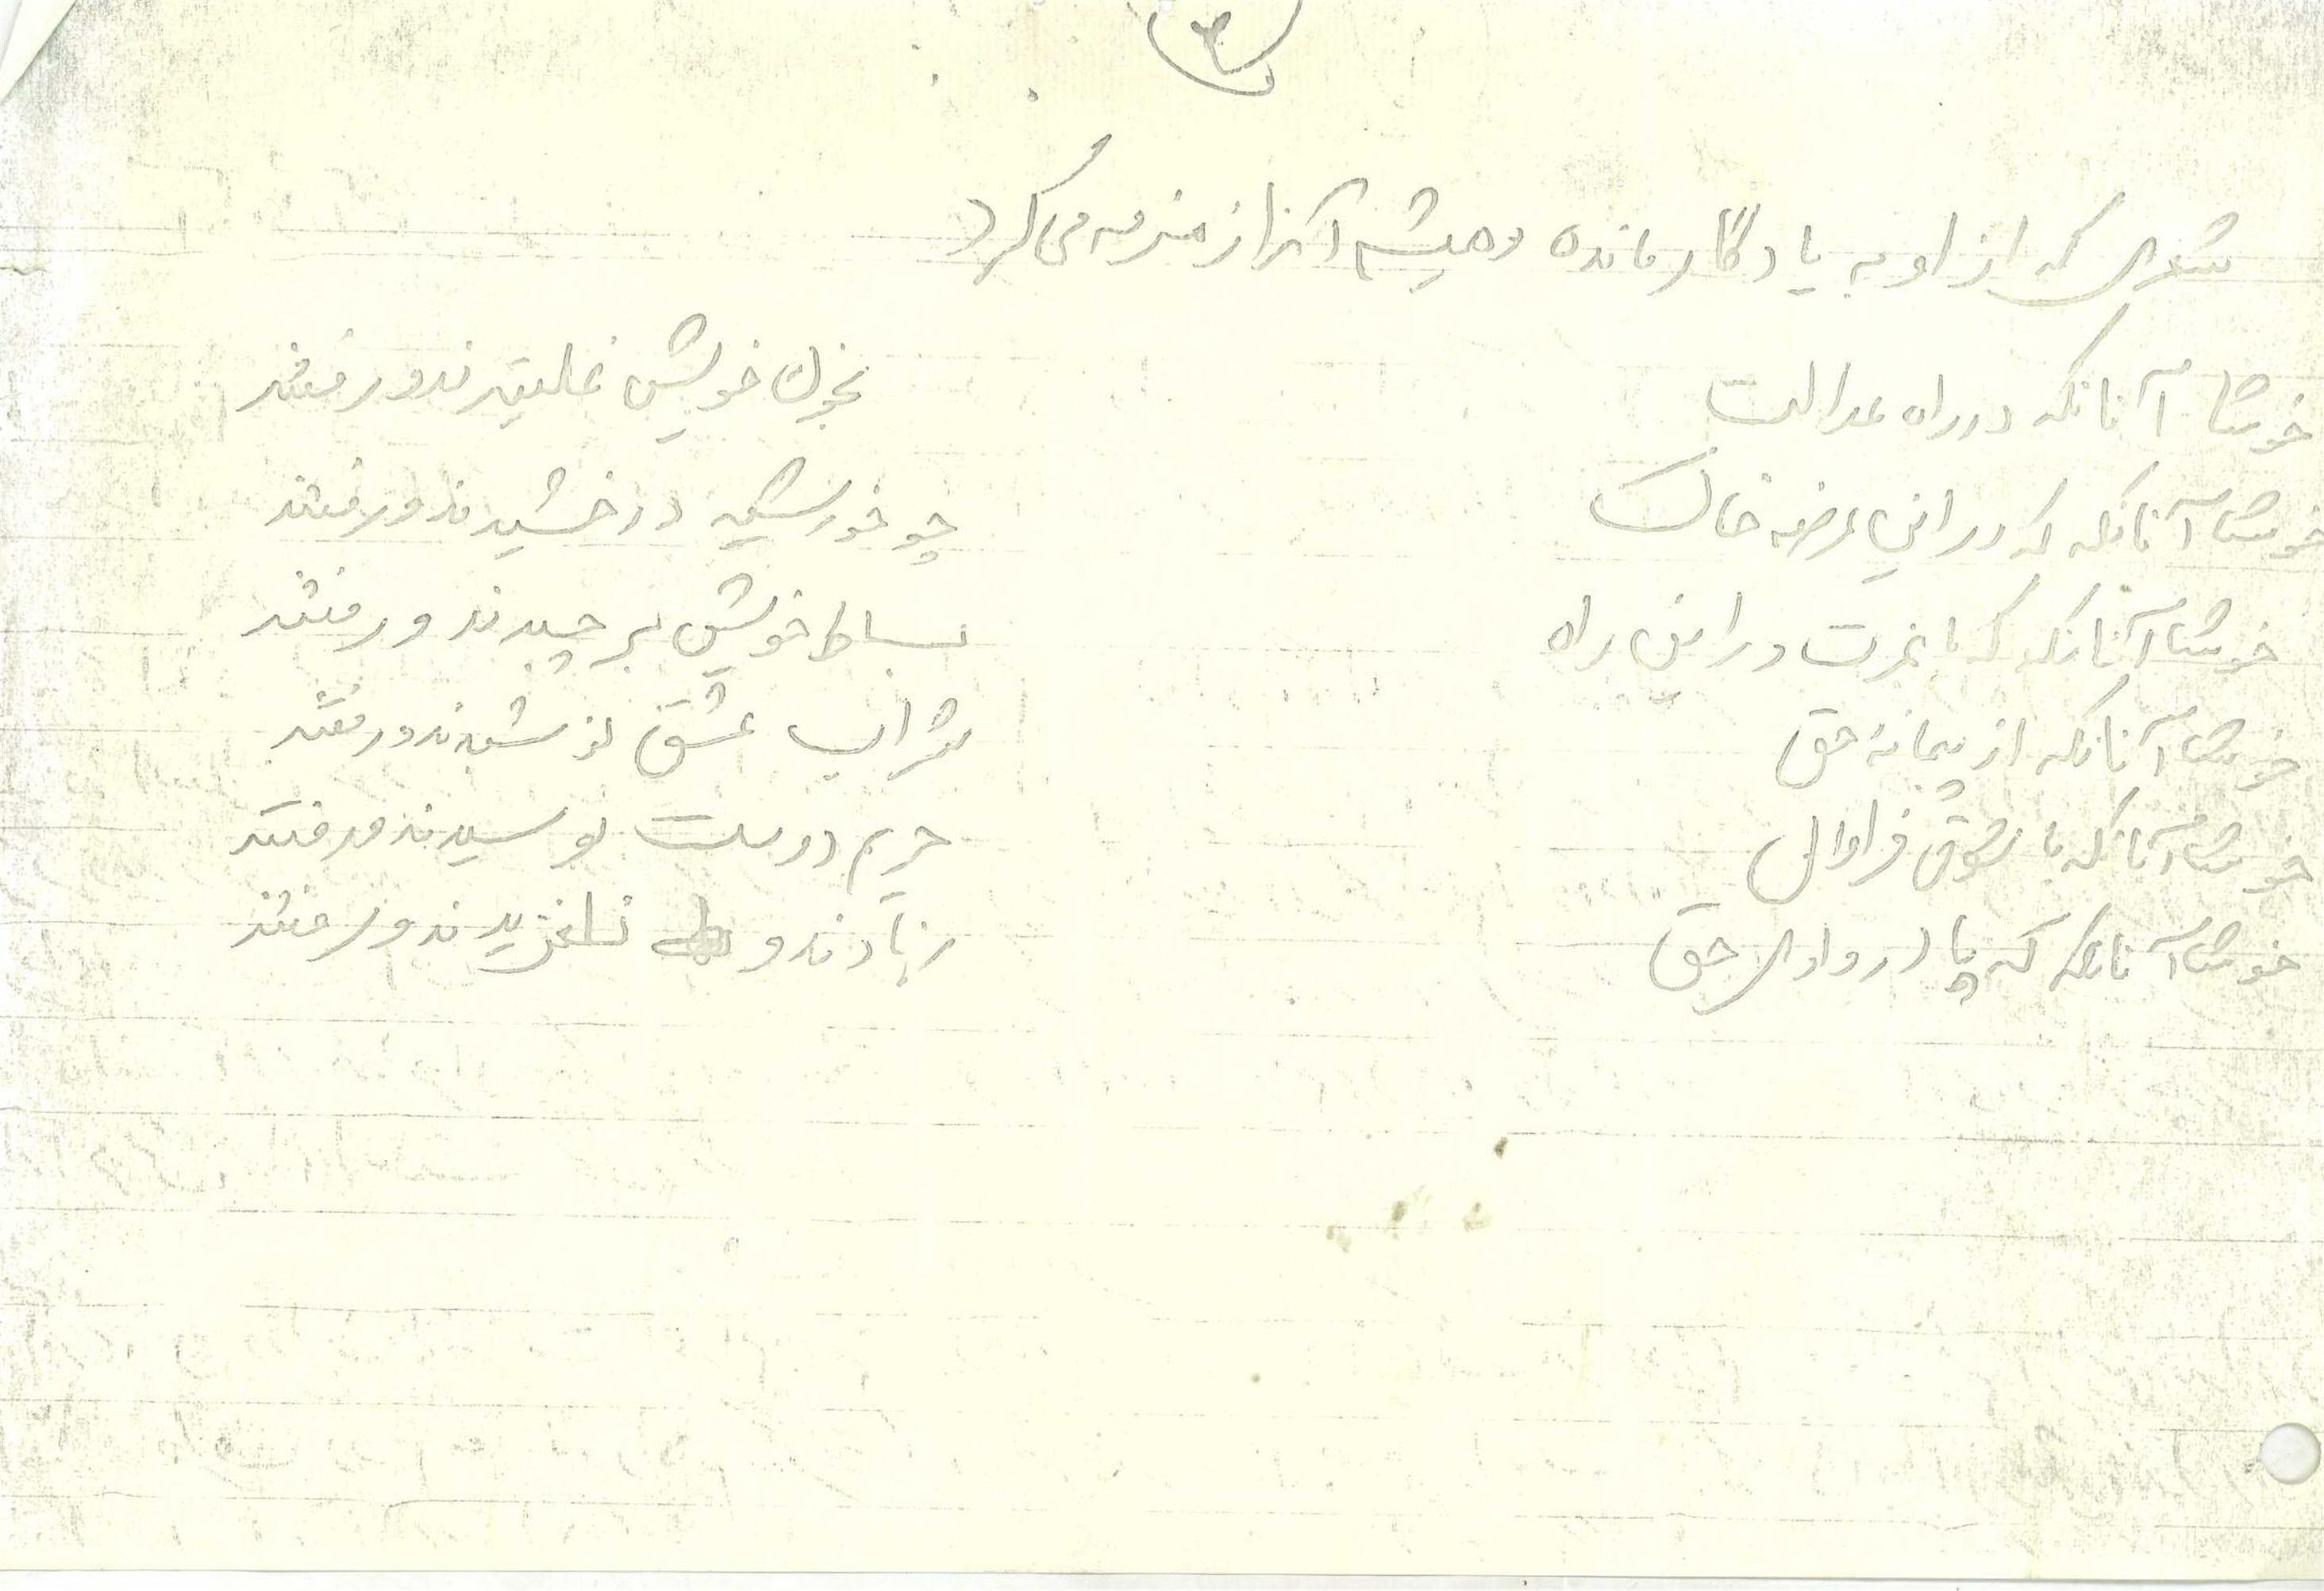 شعری که از او به یادگار مانده و همیشه آنرا زمزمه می کرد
خوشا آنانکه در راه عدالت بخون خویش غلتیدند و رفتند
خوشا آنانکه که در این عرصه خاک چو خورشید درخشیدند و رفتند
خوشا آنانکه که با عزت در این راه بساط خویش برچیدند و رفتند
خوشا آنانکه از پیمانه حق شراب عشق نوشیدند و رفتند
خوشا آنانکه با شوق فراوان حریم دوست بوسیدند و رفتند
خوشا آنانکه که پا در وادی حق نهادند و نلغزیدند و رفتند